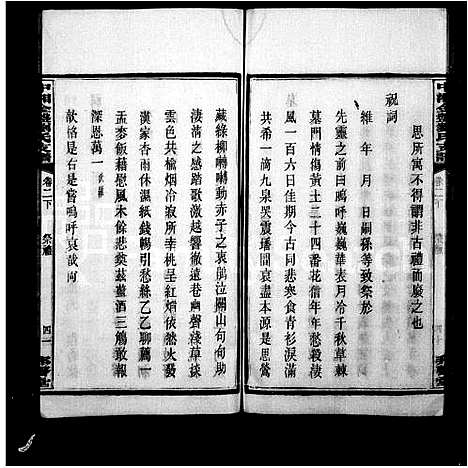 恩所寓不得謂非古禮而廢之也
祝詞
維 年 月 日嗣孫等致祭於
先靈之前曰嗚呼巍巍華表月冷千秋草棘
墓門情傷黃土二十四番花信年年愁穀淒
風一百六日佳期今古同悲寒食青衫淚滿
共希一滴九泉哭震璠間哀盡本源是恩鶯
藏綠柳囀囀動赤子之哀鵑泣關山句句助
淒清之感踏歌激越響徹遺巷幽聲淺草揉
雲色共梳烟冷寂所幸桃呈紅焰依然火發
漢家杏雨休濕紙錢暢引愁絲乙乙聊藕一
盂麥飯藉慰風木餘悲奠茲薑酒三觴敢報
深恩萬一
歆格是右是嘗嗚呼哀哉尚
卷二下
祭禮
四一